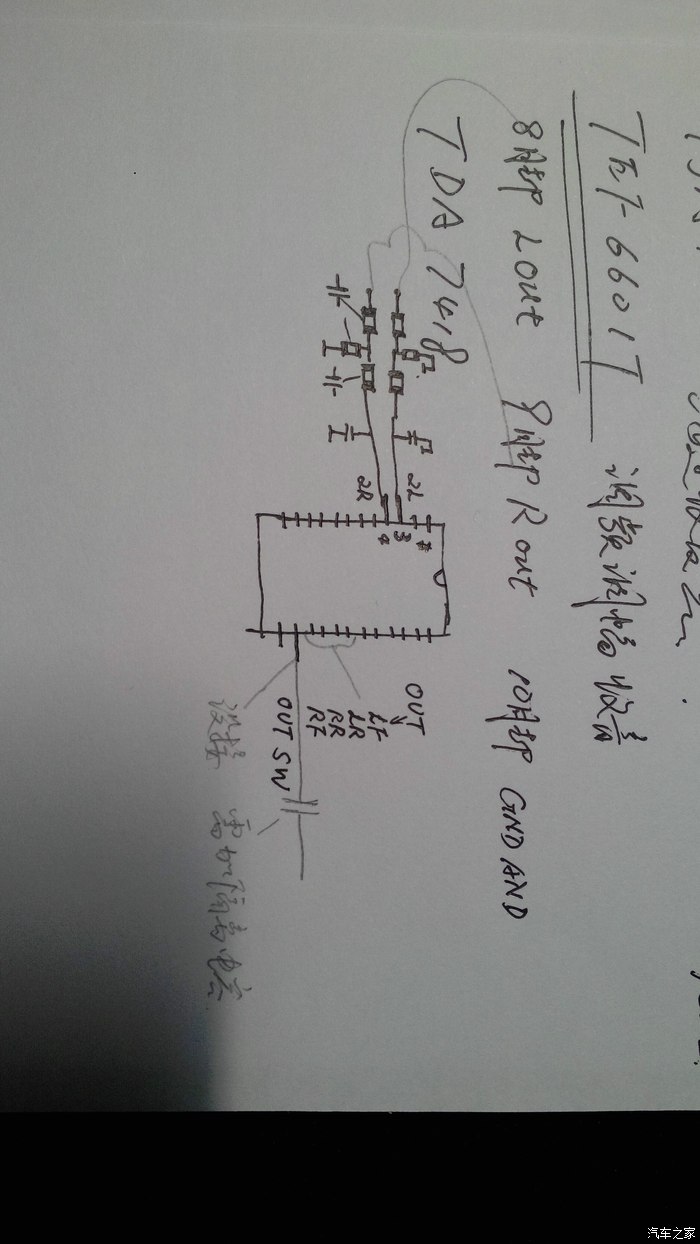 TEF6601T 调频调幅收音
8脚 Lout 9脚 R out 10脚 GND AND
TDA 7418
2L
2R
3
4
OUT
LF
LR
RR
RF
OUT SW
没接 需加隔离电容
汽车之家